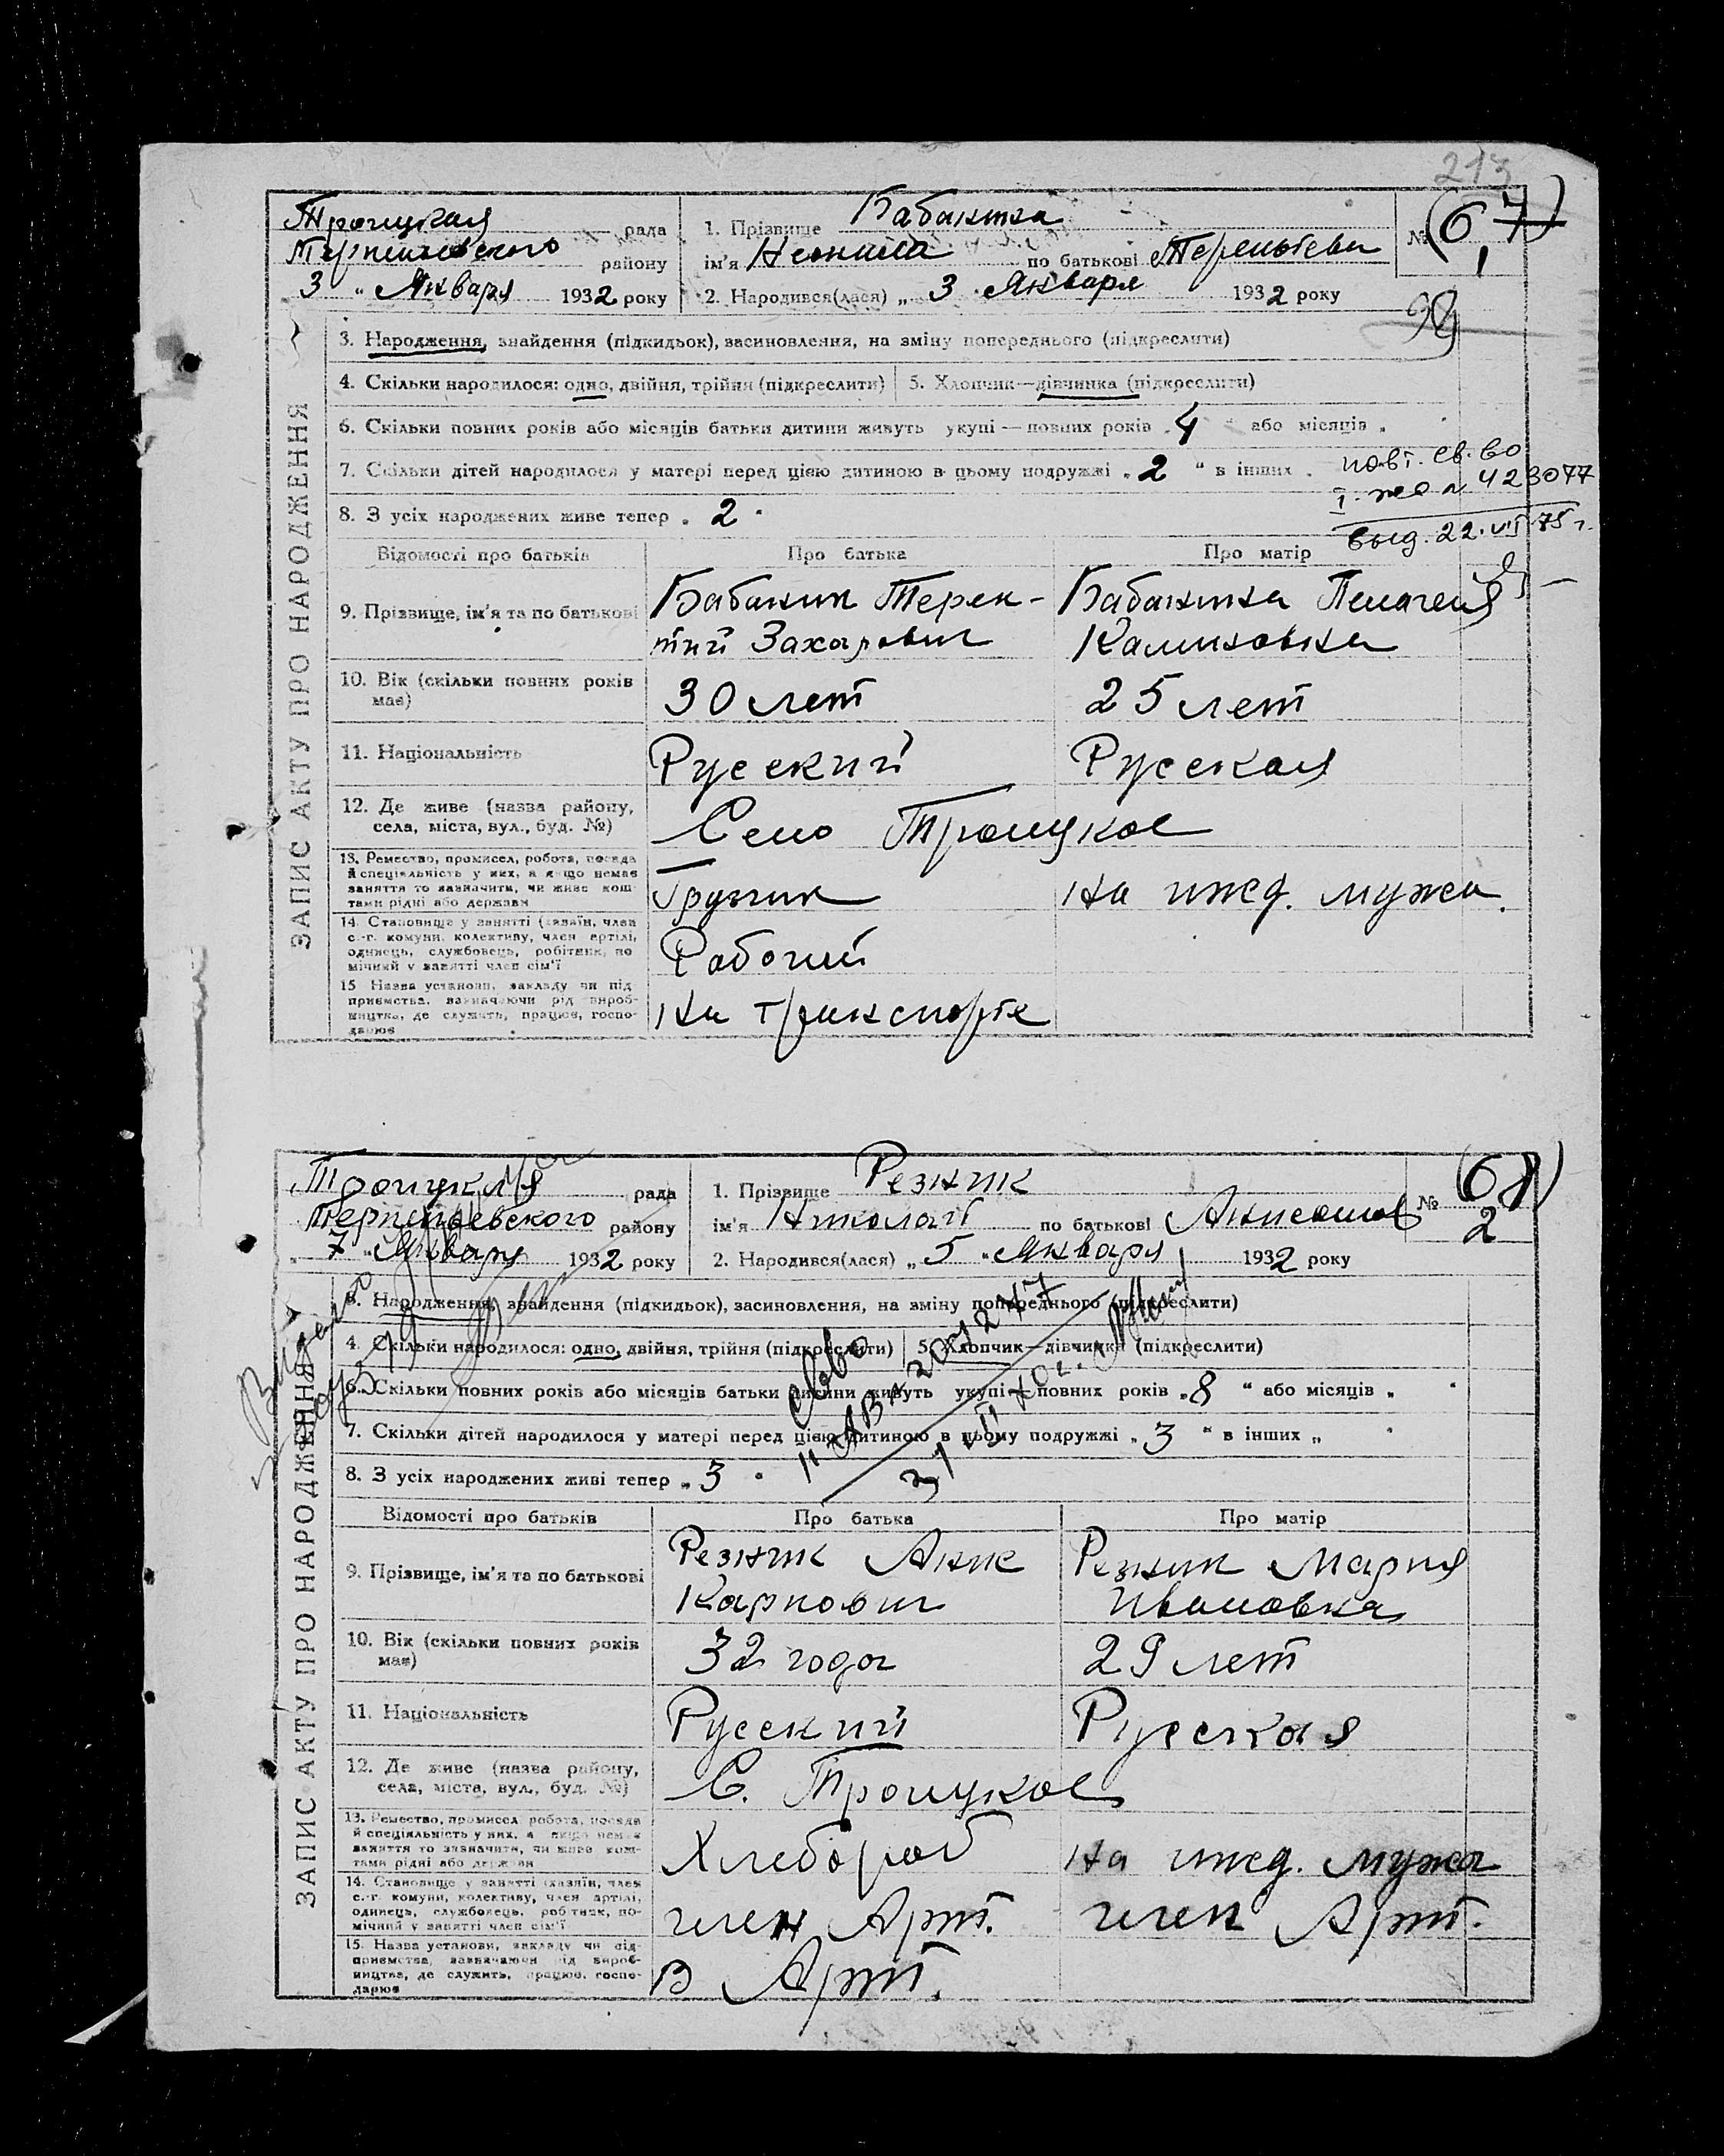 213
Троицкая рада
району
3 " Января 1932 року
1. Прізвище Бабакина
ім'я Неонила по батькові Терентьевн
2. Народився(лася) „ 3 " Января 1932 року
№ (67)
1
ЗАПИС АКТУ ПРО НАРОДЖЕННЯ
3. Народження, знайдення (підкидьок), засиновлення, на зміну попереднього (підкреслити)
4. Скільки народилося: одно, двійня, трійня (підкреслити)
5. Хлопчик—дівчинка (підкреслити)
6. Скільки повних років або місяців батьки дитини живуть укупі — повних років „ 4 " або місяців „
7. Скільки дітей народилося у матері перед цією дитиною в цьому подружжі „ 2 " в інших „
повт. св-во
428077
8. З усіх народжених живе тепер „ 2 "
выд. 22.VII 75 г.
Відомості про батьків
Про батька
Про матір
9. Прізвище, ім'я та по батькові
Бабакин Терен-
тий Захарович
Бабакина Пелагея
Калиновна
10. Вік (скільки повних років
має)
30 лет
25 лет
11. Національність
Русский
Русская
12. Де живе (назва району,
села, міста, вул., буд. №)
Село Троицкое
13. Ремество, промисел, робота, посада
й спеціяльність у них, а якщо немає
заняття то зазначити, чи живе кош-
тами рідні або держави
Грузчик
На ижд. мужа
14. Становище у занятті (хазяїн, член
с.-г. комуни, колективу, член артілі,
одинець, службовець, робітник, по
мічний у занятті член сім'ї
Рабочий
15. Назва установи, закладу чи під
приємства, зазначаючи рід вироб-
ництва, де служить, працює, госпо-
дарює
На транспорте
Троицкая рада
району
7 " Января 1932 року
1. Прізвище Резник
ім'я Николай по батькові
2. Народився(лася) „ 5 " Января 1932 року
№ (68)
2
ЗАПИС АКТУ ПРО НАРОДЖЕННЯ
3. Народження, знайдення (підкидьок), засиновлення, на зміну попереднього (підкреслити)
4. Скільки народилося: одно, двійня, трійня (підкреслити)
5. Хлопчик—дівчинка (підкреслити)
6. Скільки повних років або місяців батьки дитини живуть укупі — повних років „ 8 " або місяців „ "
7. Скільки дітей народилося у матері перед цією дитиною в цьому подружжі „ 3 " в інших „ "
8. З усіх народжених живі тепер „ 3 "
Відомості про батьків
Про батька
Про матір
9. Прізвище, ім'я та по батькові
Резник
Карпович
Резник Мария
Ивановна
10. Вік (скільки повних років
має)
32 года
29 лет
11. Національність
Русский
Русская
12. Де живе (назва району,
села, міста, вул., буд. №)
С. Троицкое
13. Ремество, промисел, робота, посада
й спеціяльність у них, а якщо немає
заняття то зазначити, чи живе кош-
тами рідні або держави
Хлебороб
На ижд. мужа
14. Становище у занятті (хазяїн, член
с.-г. комуни, колективу, член артілі,
одинець, службовець, робітник, по-
мічний у занятті член сім'ї
член Арт.
член Арт.
15. Назва установи, закладу чи під-
приємства, зазначаючи рід вироб-
ництва, де служить, працює, госпо-
дарює
В Арт.